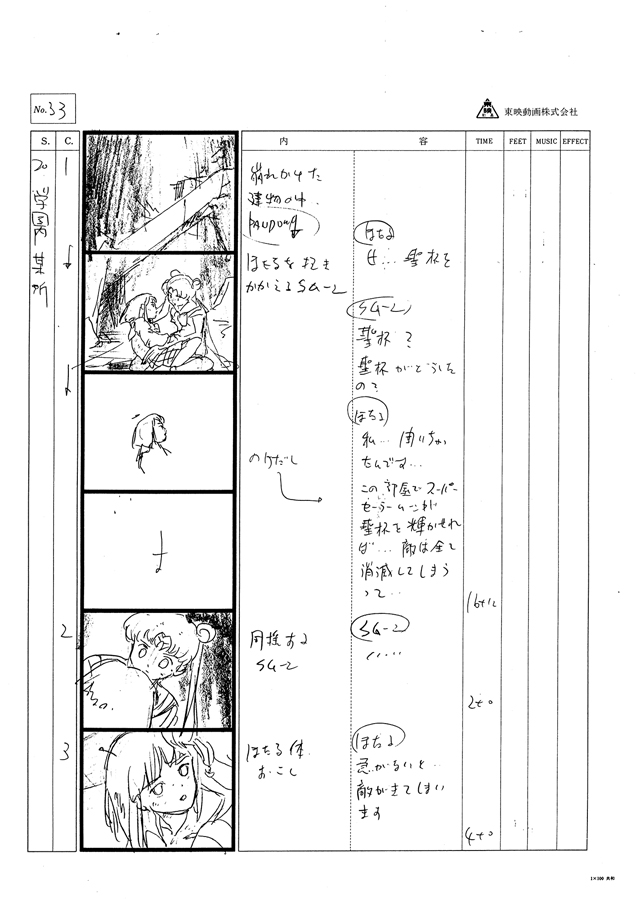 No.33
東映動画株式会社
S.
C.
内
容
TIME
FEET
MUSIC
EFFECT
20
学園内某所
1
崩れかけた
建物の中.
PAN DOWN
ほたるを抱き
かかえるSM-2
ほたる
せ… 聖杯を
SM-2
聖杯?
聖杯がどうした
の?
ほたる
私… 聞いちゃっ
たんです…
この部屋でスーパー
セーラームーンが
聖杯を輝かせれ
ば… 敵は全て
消滅してしまう
って…
16+12
2
SM-2
SM-2
……
2+0
3
ほたる体
おこし
ほたる
急がないと…
敵がきてしまい
ます
4+0
1×100 共和